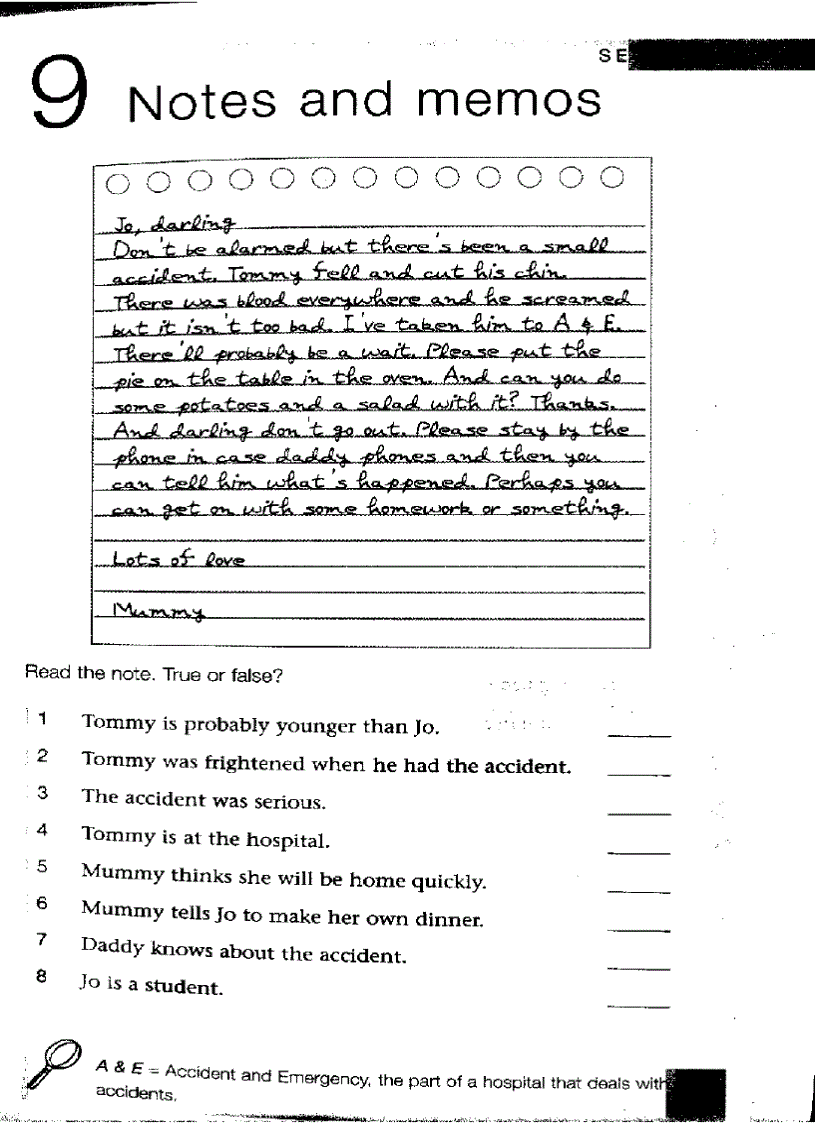 SE
9 Notes and memos
Jo, darling
Don't be alarmed but there's been a small
accident. Tommy fell and cut his chin.
There was blood everywhere and he screamed
but it isn't too bad. I've taken him to A & E.
There'll probably be a wait. Please put the
pie on the table in the oven. And can you do
some potatoes and a salad with it? Thanks.
And darling don't go out. Please stay by the
phone in case daddy phones and then you
can tell him what's happened. Perhaps you
can get on with some homework or something.
Lots of love
Mummy
Read the note. True or false?
1 Tommy is probably younger than Jo.
2 Tommy was frightened when he had the accident.
3 The accident was serious.
4 Tommy is at the hospital.
5 Mummy thinks she will be home quickly.
6 Mummy tells Jo to make her own dinner.
7 Daddy knows about the accident.
8 Jo is a student.
A & E = Accident and Emergency, the part of a hospital that deals with
accidents.